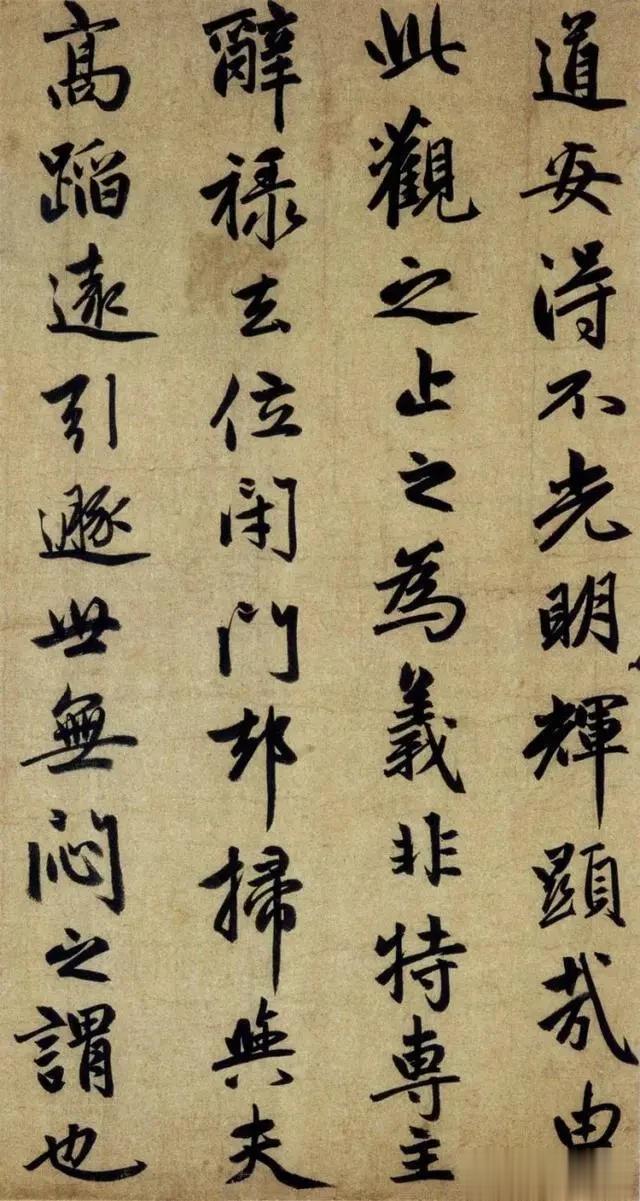 道安得不光明輝顯哉由
此觀之止之為義非特専主
辭祿去位閉門却掃與夫
髙蹈遠引遯世無悶之謂也